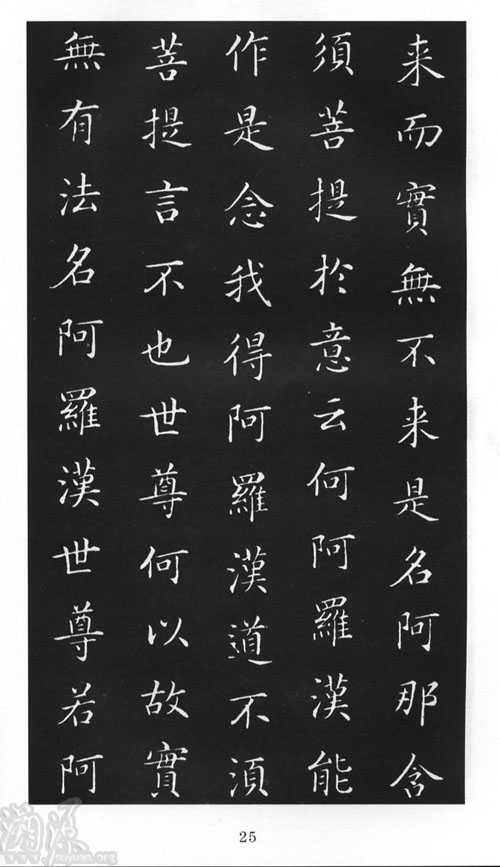 来而實無不来是名阿那含
須菩提扵意云何阿羅漢能
作是念我得阿羅漢道不湏
菩提言不也世尊何以故實
無有法名阿羅漢世尊若阿
25
suyuan.org